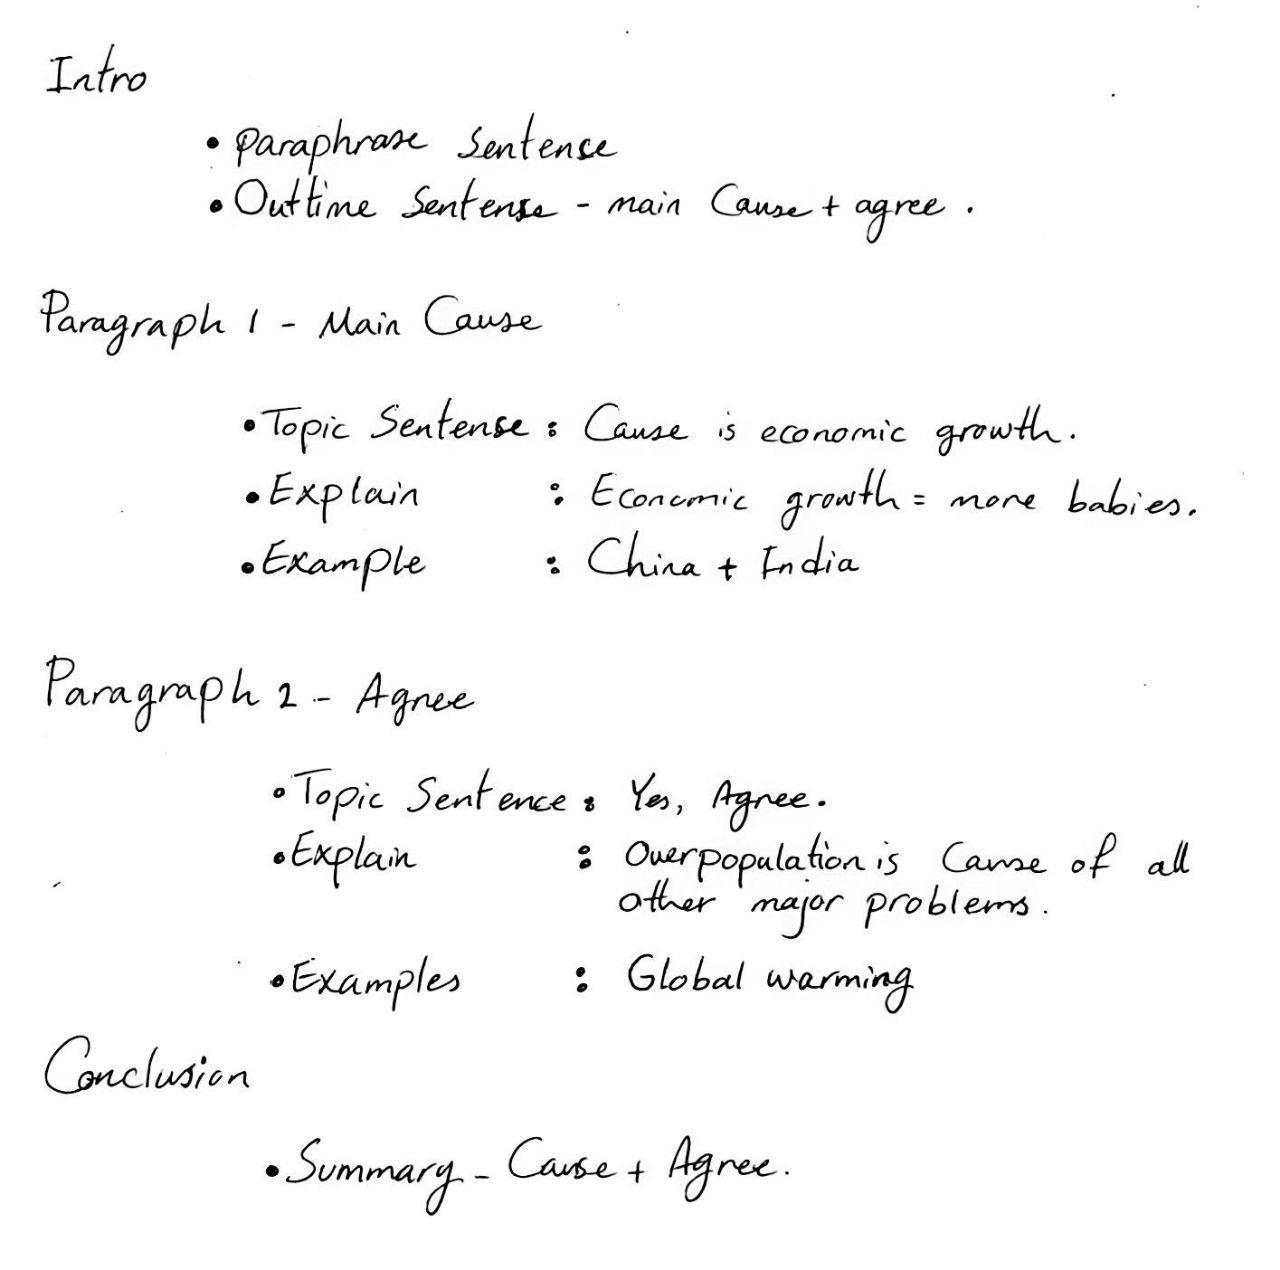 Intro
• Paraphrase Sentence
• Outtime Sentense - main Cause + agree .
Paragraph 1 - Main Cause
• Topic Sentense : Cause is economic growth.
• Explain : Economic growth = more babies.
• Example : China + India
Paragraph 2 - Agree
• Topic Sentence : Yes, Agree.
• Explain : Overpopulation is Cause of all
other major problems.
• Examples : Global warming
Conclusion
• Summary - Cause + Agree.